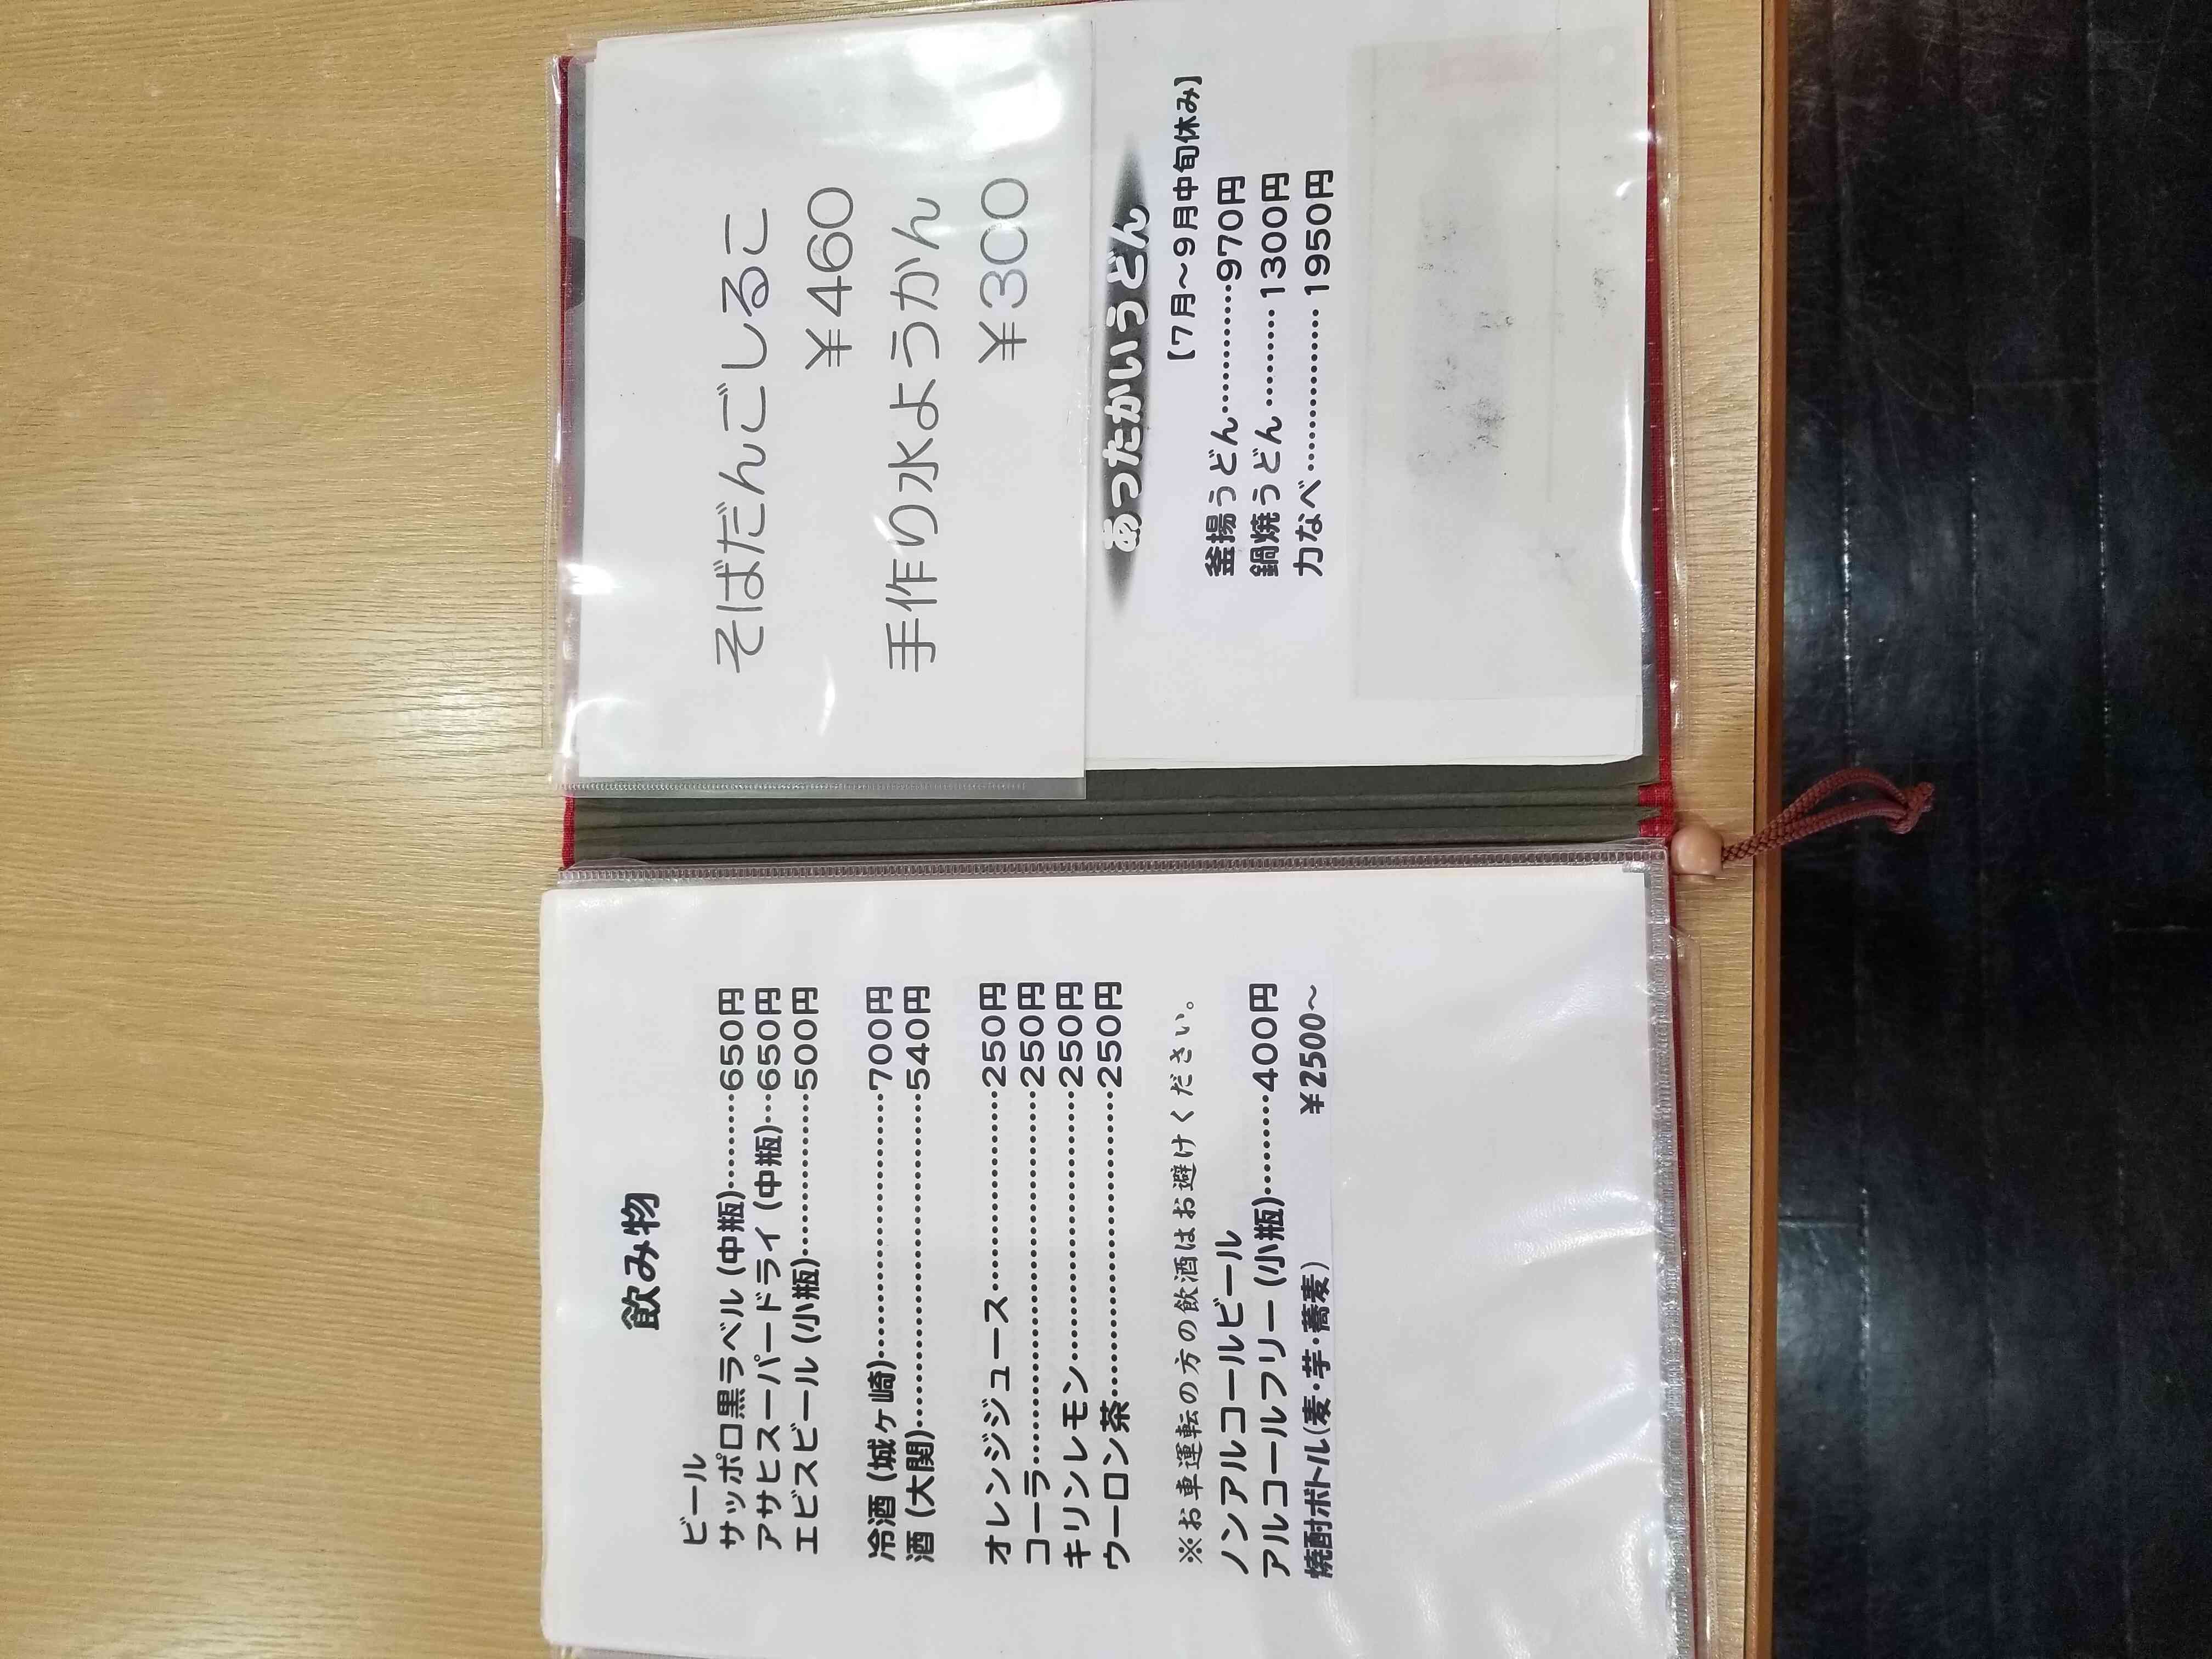 飲み物
ビール
サッポロ黒ラベル(中瓶)………650円
アサヒスーパードライ(中瓶)…650円
エビスビール(小瓶)……………500円
冷酒(城ヶ崎)………………………700円
酒(大関)……………………………540円
オレンジジュース…………………250円
コーラ………………………………250円
キリンレモン………………………250円
ウーロン茶…………………………250円
※お車運転の方の飲酒はお避けください。
ノンアルコールビール
アルコールフリー(小瓶)………400円
焼酎ボトル(麦・芋・蕎麦) ¥2500〜
そばだんごしるこ
¥460
手作り水ようかん
¥300
あったかいうどん
【7月〜9月中旬休み】
釜揚うどん…………970円
鍋焼うどん………1300円
力なべ……………1950円